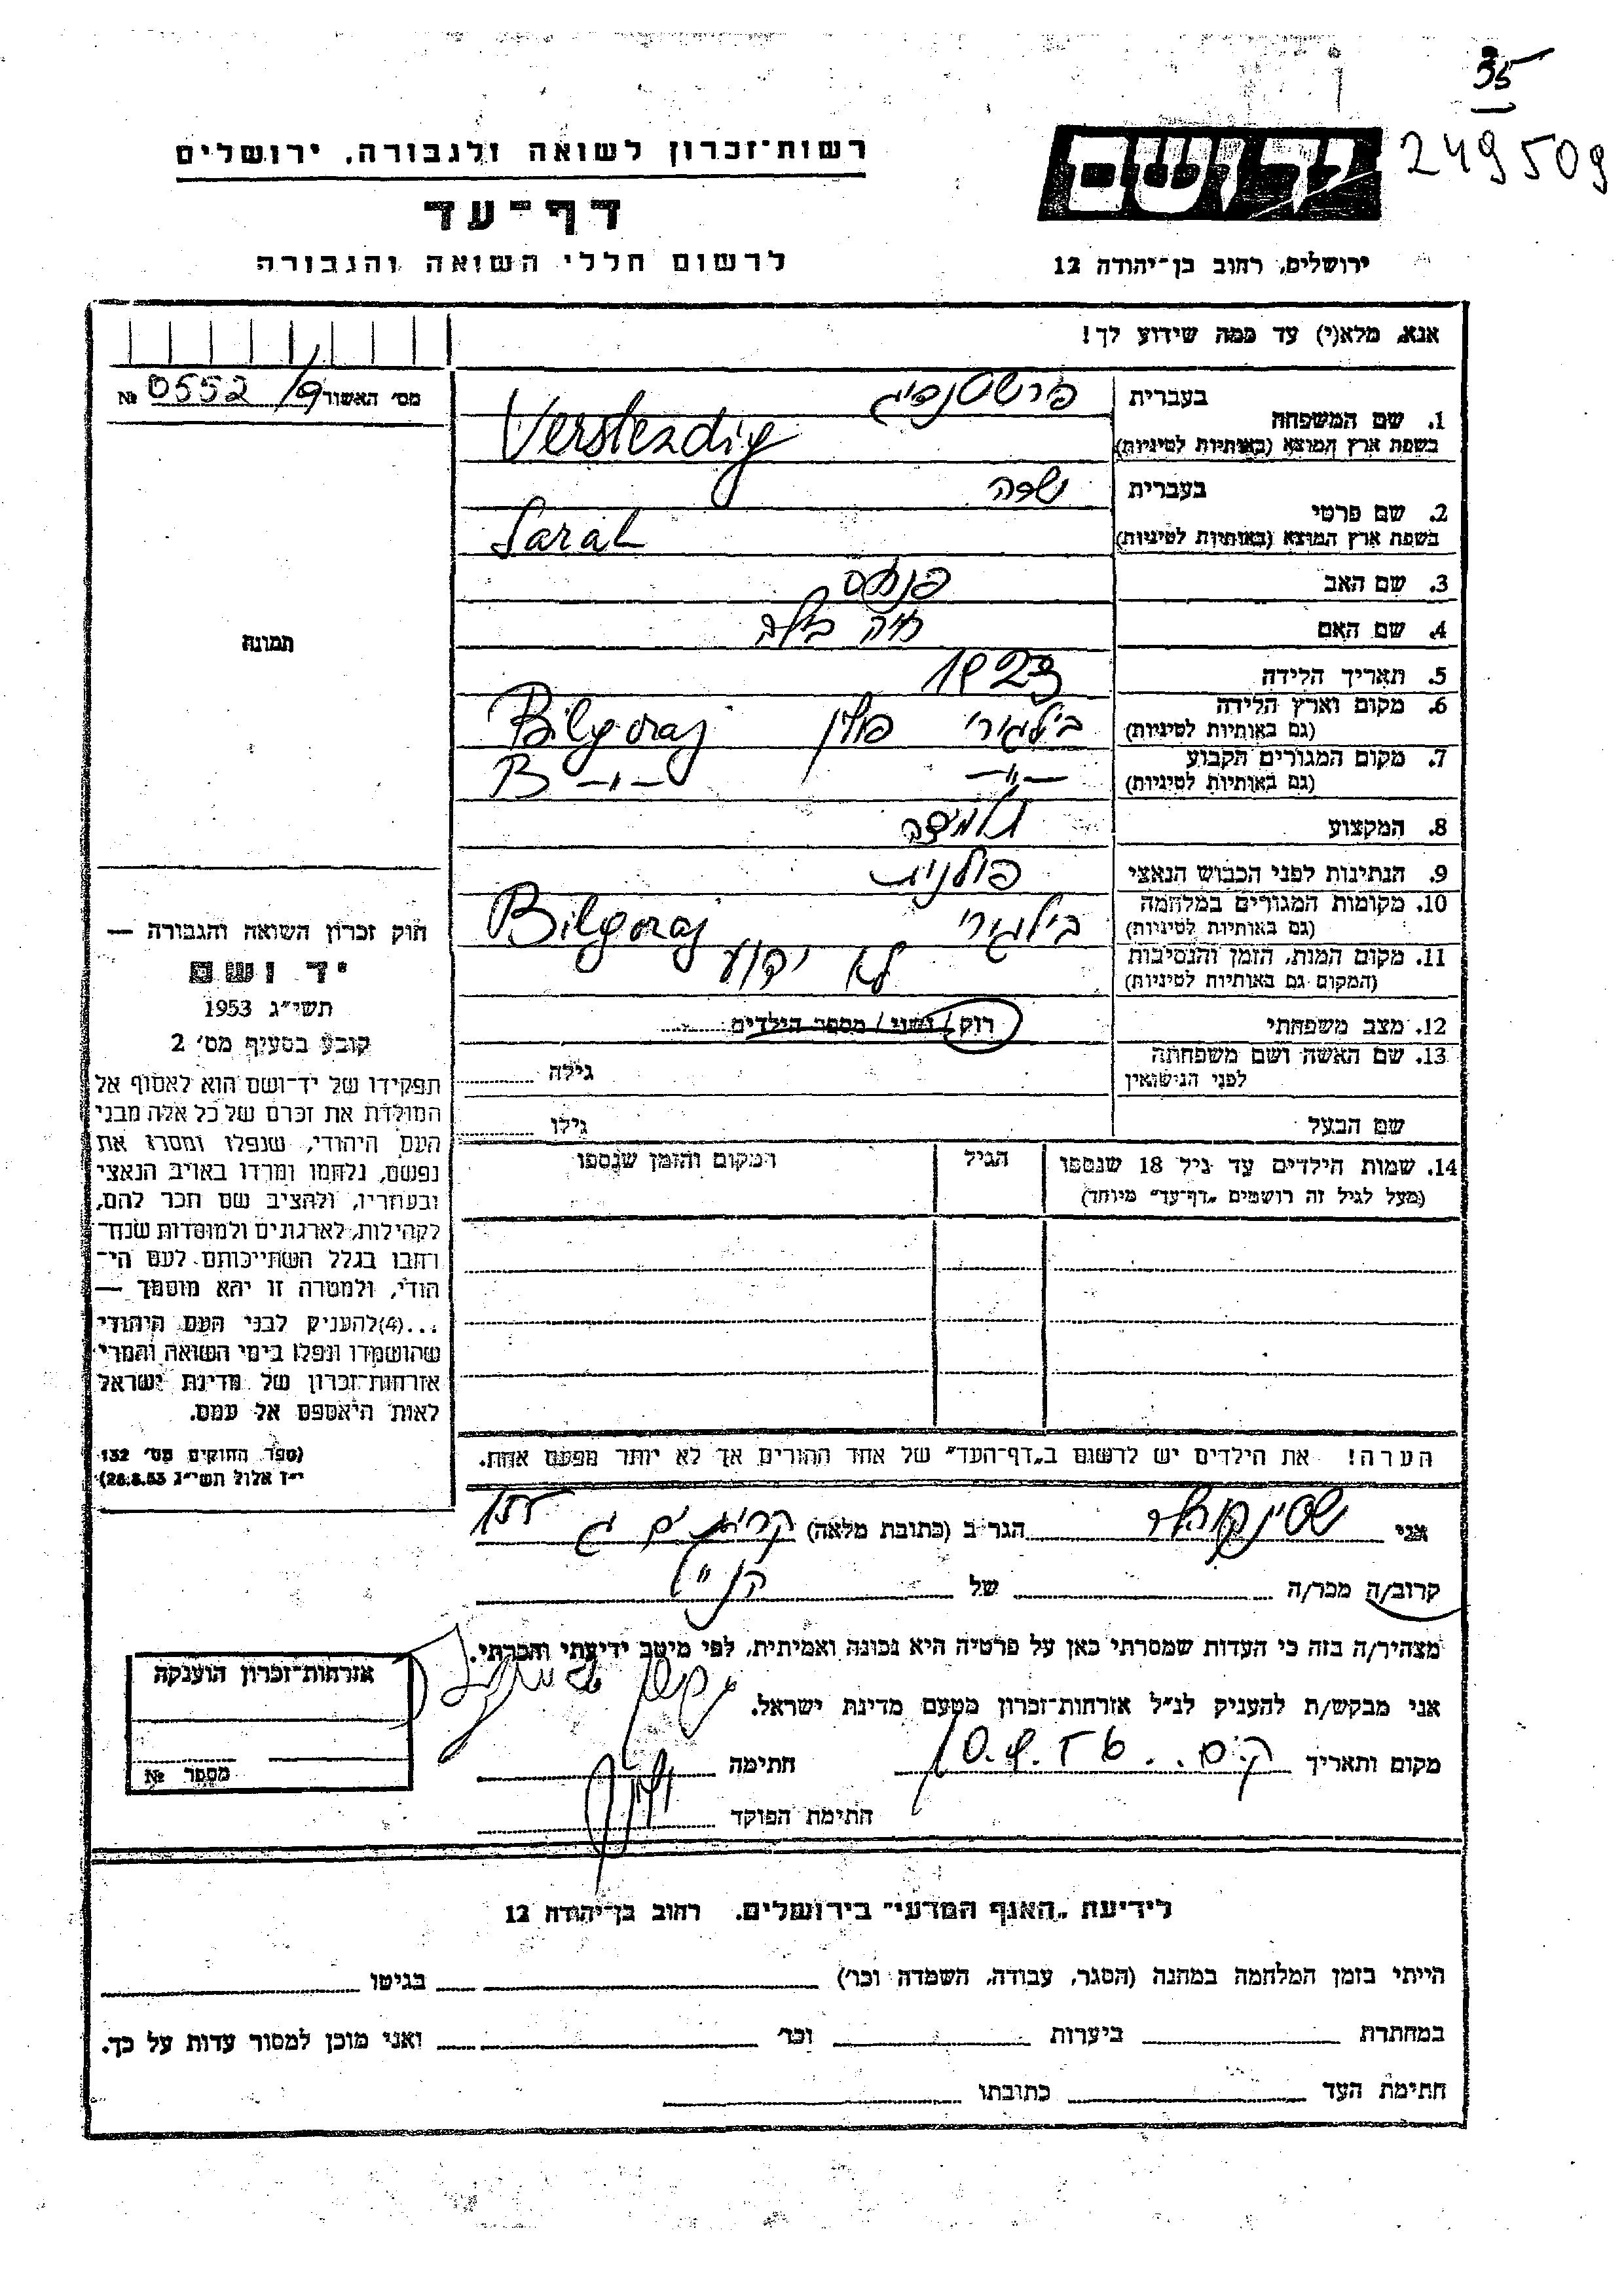 35
249509
יד ושם
ירושלים, רחוב בן־יהודה 12
רשות־זכרון לשואה ולגבורה, ירושלים
דף־עד
לרשום חללי השואה והגבורה
אנא, מלא(י) עד כמה שידוע לך!
מס׳ האשור 0552/9 №
1. שם המשפחה
בעברית פרשטנדיג
בשפת ארץ המוצא (באותיות לטיניות) Verstendig
2. שם פרטי
בעברית שרה
בשפת ארץ המוצא (באותיות לטיניות) Sarah
3. שם האב פנחס
4. שם האם חיה
5. תאריך הלידה 1923
6. מקום וארץ הלידה
(גם באותיות לטיניות) בילגורי פולין Bilgoraj
7. מקום המגורים הקבוע
(גם באותיות לטיניות) —״— B —״—
8. המקצוע תלמידה
9. הנתינות לפני הכבוש הנאצי פולנית
10. מקומות המגורים במלחמה
(גם באותיות לטיניות) בילגורי Bilgoraj
11. מקום המות, הזמן והנסיבות
(המקום גם באותיות לטיניות) לא ידוע
12. מצב משפחתי רווק / נשוי / מספר הילדים
13. שם האשה ושם משפחתה
לפני הנישואין
גילה
שם הבעל גילו
14. שמות הילדים עד גיל 18 שנספו הגיל המקום והזמן שנספו
(מעל לגיל זה רושמים „דף־עד״ מיוחד)
הערה! את הילדים יש לרשום ב„דף־העד״ של אחד ההורים אך לא יותר מפעם אחת.
תמונה
חוק זכרון השואה והגבורה —
יד ושם
תשי״ג 1953
קובע בסעיף מס׳ 2
תפקידו של יד־ושם הוא לאסוף אל
המולדת את זכרם של כל אלה מבני
העם היהודי, שנפלו ומסרו את
נפשם, נלחמו ומרדו באויב הנאצי
ובעוזריו, ולהציב שם וזכר להם,
לקהילות, לארגונים ולמוסדות שנח־
רבו בגלל השתייכותם לעם הי־
הודי, ולמטרה זו יהא מוסמך —
...(4)להעניק לבני העם היהודי
שהושמדו ונפלו בימי השואה והמרי
אזרחות־זכרון של מדינת ישראל
לאות היאספם אל עמם.
(ספר החוקים מס׳ 132
י״ז אלול תשי״ג 28.8.53)
אני הגר ב (כתובת מלאה) קרית ים ג
קרוב/ה מכר/ה של הנ״ל
מצהיר/ה בזה כי העדות שמסרתי כאן על פרטיה היא נכונה ואמיתית, לפי מיטב ידיעתי והכרתי.
אני מבקש/ת להעניק לנ״ל אזרחות־זכרון מטעם מדינת ישראל.
מקום ותאריך ק. ים חתימה
חתימת הפוקד
אזרחות־זכרון הוענקה
מספר №
לידיעת „האגף המדעי״ בירושלים, רחוב בן־יהודה 12
הייתי בזמן המלחמה במחנה (הסגר, עבודה, השמדה וכו׳) בגיטו
במחתרת ביערות וכו׳ ואני מוכן למסור עדות על כך.
חתימת העד כתובתו